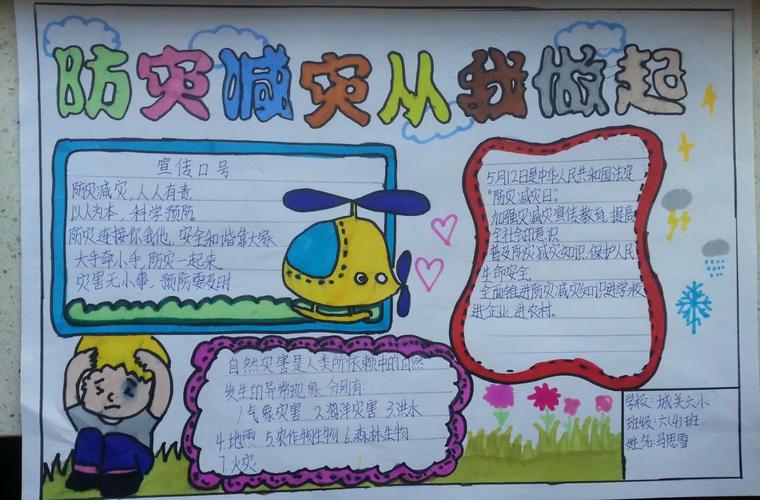 防灾减灾从我做起
宣传口号
防灾减灾,人人有责
以人为本,科学预防
防灾连接你我他,安全和谐靠大家
大手牵小手,防灾一起来
灾害无小事,预防要及时
5月12日是中华人民共和国法定
"防灾减灾日"。
加强灾减灾宣传教育,提高
全社会的意识
普及防灾减灾知识,保护人民
生命安全
全面推进防灾减灾知识进学校
进企业、进农村。
自然灾害是人类所依赖中的自然
发生的异常现象,分别有:
1.气象灾害 2.海洋灾害 3.洪水
4.地雨 5.农作物生物 6.森林生物
7.火灾
学校:城关六小
班级:六(4)班
姓名:马思雪